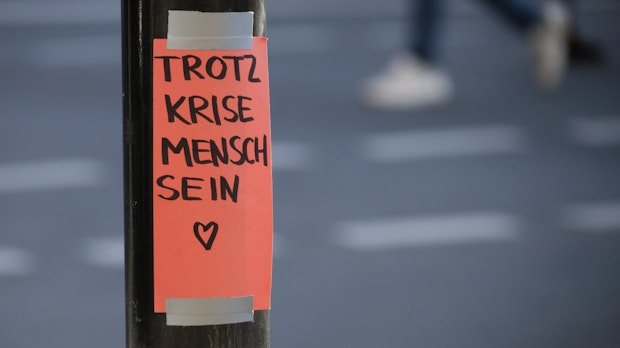 TROTZ
KRISE
MENSCH
SEIN
♡